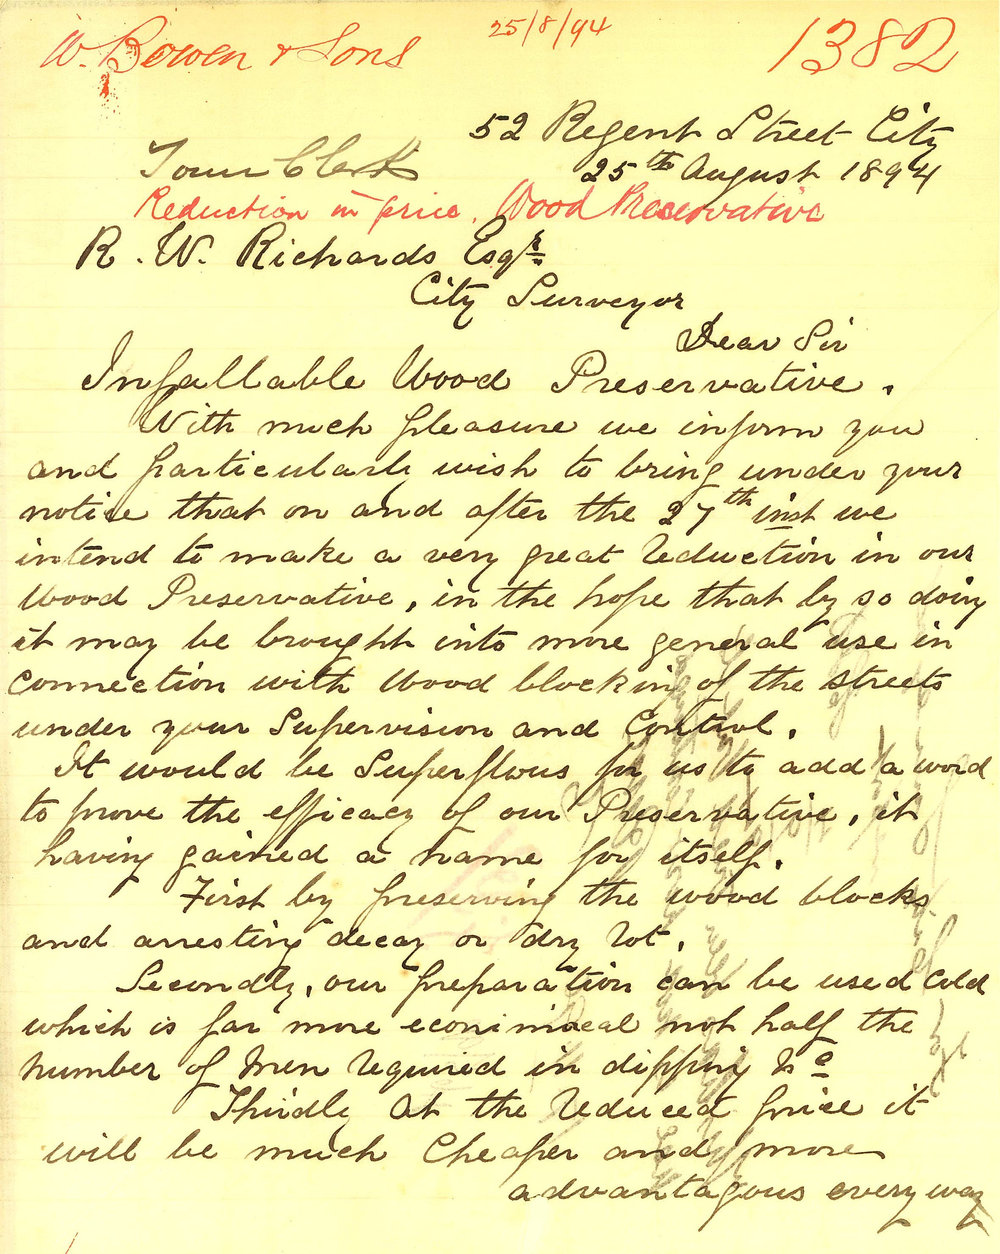 W. Bowen & Sons
25/8/94
1382
52 Regent Street City
Town Clerk
25th August 1894
Reduction in price. Wood Preservative
R. W. Richards Esqr
City Surveyor
Dear Sir
Infallable Wood Preservative.
With much pleasure we inform you
and particularly wish to bring under your
notice that on and after the 27th inst we
intend to make a very great reduction in our
Wood Preservative, in the hope that by so doing
it may be brought into more general use in
connection with Wood blocking of the streets
under your Supervision and Control.
It would be Superflous for us to add a word
to prove the efficacy of our Preservative, it
having gained a name for itself.
First by preserving the wood blocks
and arresting decay or dry rot.
Secondly, our preparation can be used Cold
which is far more econimical not half the
number of Men required in dipping &c
Thirdly at the reduced price it
will be much Cheaper and more
advantagous every way